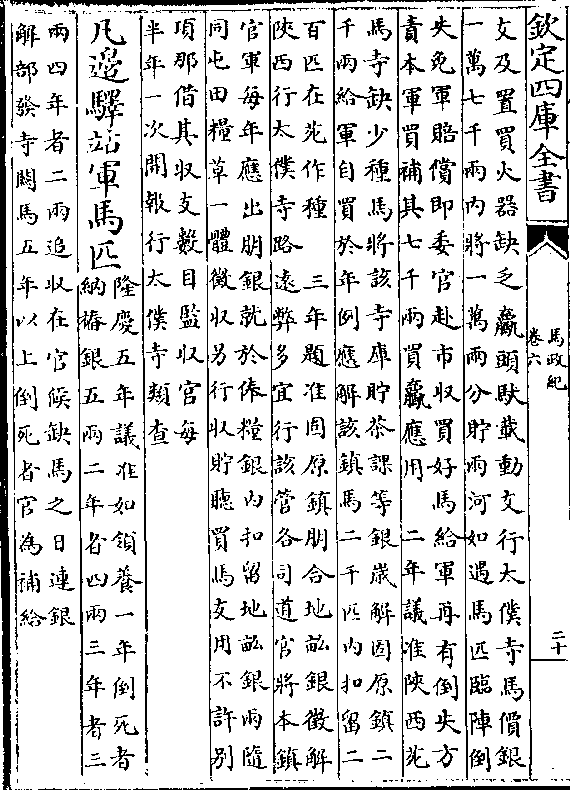 欽定四庫全書
馬政紀
卷六
二十
支及置買火器缺乏驘頭馱載動支行太僕寺馬價銀
一萬七千兩內將一萬兩分貯兩河如遇馬匹臨陣倒
失免軍賠償即委官赴市收買好馬給軍再有倒失方
責本軍買補其七千兩買驘應用　二年議准陜西苑
馬寺缺少種馬將該寺庫貯茶課等銀嵗解固原鎮二
千兩給軍自買於年例應解該鎮馬二千匹內扣留二
百匹在苑作種　三年題准固原鎮朋合地畝銀徵解
陜西行太僕寺路遠弊多宜行該管各司道官將本鎮
官軍每年應出朋銀就於俸糧銀內扣留地畝銀兩隨
同屯田糧草一體徵収另行収貯聽買馬支用不許別
項那借其収支數目監収官每
半年一次開報行太僕寺類查
凡邊驛站軍馬匹
隆慶五年議准如領養一年倒死者
納樁銀五兩二年者四兩三年者三
兩四年者二兩追収在官候缺馬之日連銀
解部發寺關馬五年以上倒死者官為補給